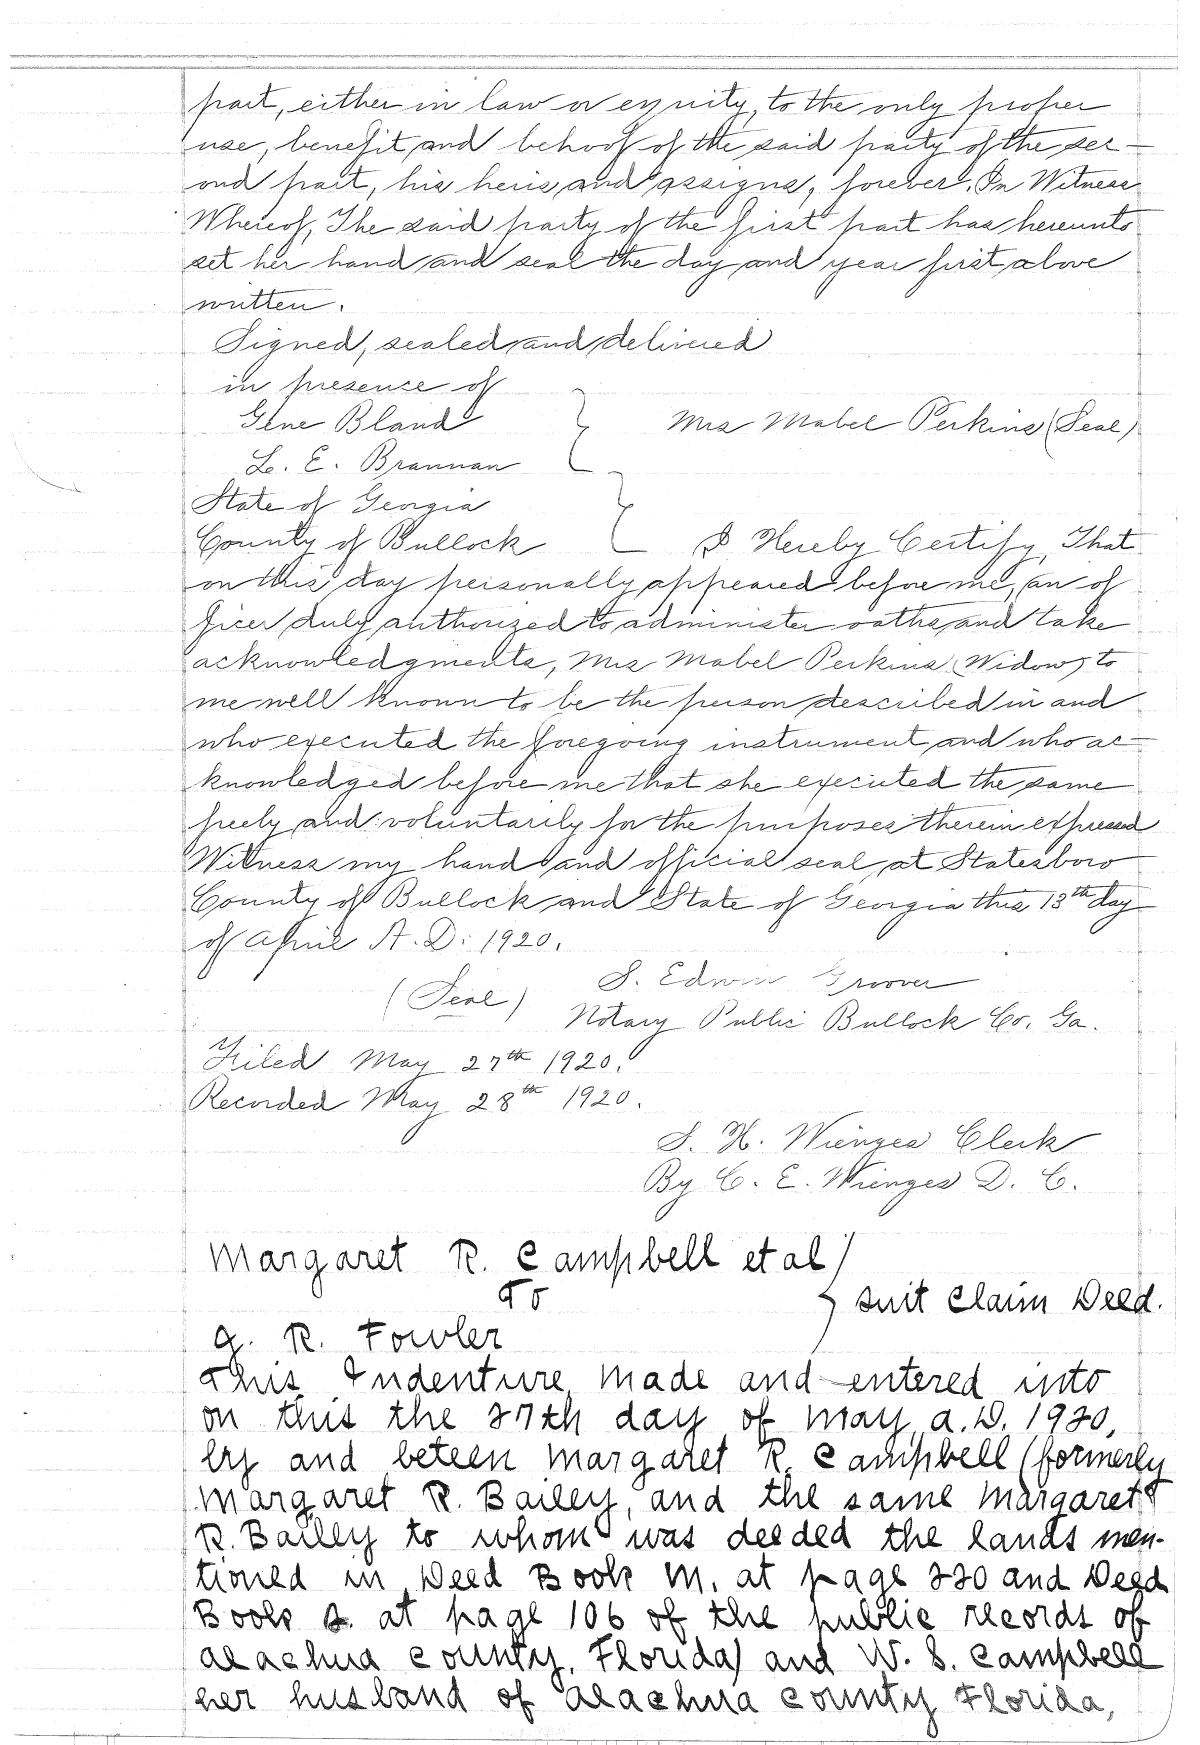 part, either in law or equity, to the only proper
use, benefit and behoof of the said party of the sec-
ond part, his heris and assigns, forever. In Witness
Whereof, The said party of the first part has hereunto
set her hand and seal the day and year first above
written.
Signed, sealed and delivered
in presence of
Gene Bland
Mrs Mabel Perkins (Seal)
L. E. Brannan
State of Georgia
County of Bullock I Hereby Certify, That
on this day personally appeared before me, an of
ficer duly authorized to administer oaths and take
acknowledgments, Mrs Mabel Perkins (Widow) to
me well known to be the person described in and
who executed the foregoing instrument and who ac-
knowledged before me that she executed the same
freely and voluntarily for the purposes therein expressed
Witness my hand and official seal at Statesboro
County of Bullock and State of Georgia this 13th day
of April A. D. 1920.
(Seal) S. Edwin Groover
Notary Public Bullock Co. Ga.
Filed May 27th 1920.
Recorded May 28th 1920.
S. H. Wienges Clerk
By C. E. Wienges D. C.
Margaret R. Campbell et al
To
Quit Claim Deed.
J. R. Fowler
This Indenture, made and entered into
on this the 27th day of May, A.D. 1920,
by and beteen Margaret R. Campbell (formerly
Margaret R. Bailey, and the same Margaret
R. Bailey to whom was deeded the lands men-
tioned in Deed Book M. at page 220 and Deed
Book at page 106 of the public records of
Alachua County, Florida) and W. S. Campbell
her husband of Alachua County Florida,